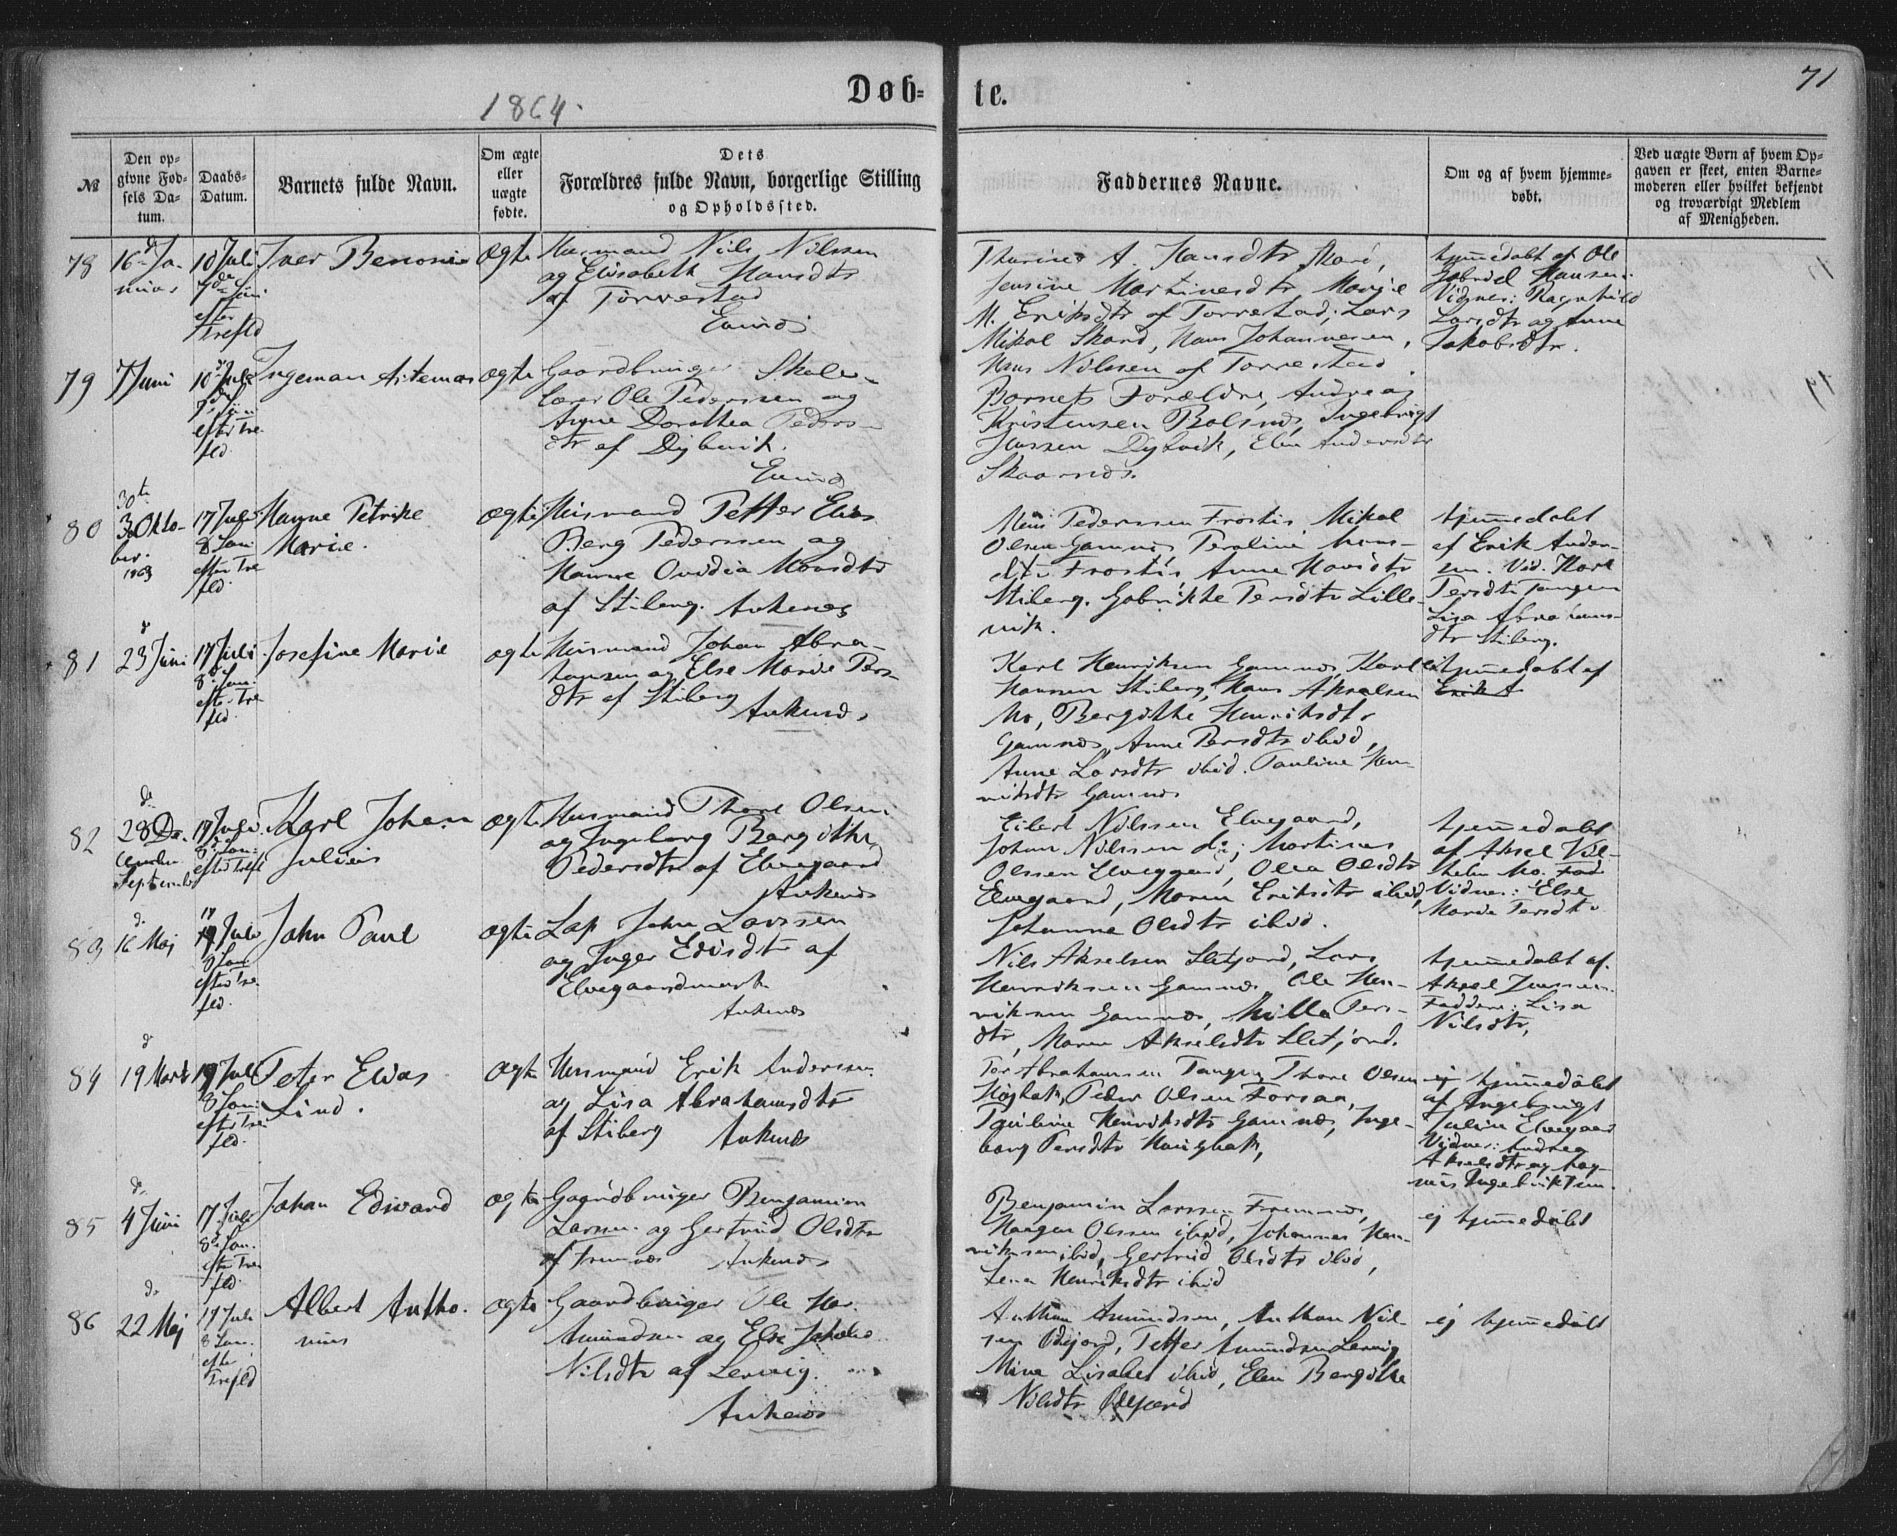 1864.
Døb-
te.
71
№
Den op-
givne Fød-
sels Da-
tum.
Daabs-
Datum.
Barnets fulde Navn.
Om ægte
eller
uægte
fødte.
Dets
Forældres fulde Navn, borgerlige Stilling
og Opholdssted.
Faddernes Navne.
Om og af hvem hjemme-
døbt.
Ved uægte Børn af hvem Op-
gaven er skeet, enten Barne-
moderen eller hvilket bekjendt
og troværdigt Medlem
af Menigheden.
78
16 Ja-
nuar
10 Juli
efter
Trefld
Iver Benoni
ægte
Husmand Nils Nilssen
og Elisabeth Hansdtr
af Torrestad
A. Hansdtr
Jensine Martinesdtr Marie
M. Eriksdtr af Torrestad, Lars
Mikal Skard, Hans Johannesen,
Hans Nilssen af Torrestad.
hjemmedøbt af Ole
Gabriel Hansen.
Vidner: Ragnhild
Larsdtr og Anne
Jakobsdtr.
79
7 Juni
10 Juli
efter Tre
fld.
Ingeman Artemas
ægte
Gaardbruger Skole-
lærer Ole Pederssen og
Anne Dorothea Peders-
dtr af Dybvik.
Barnets Forældre, Andreas
Kristensen Bolsnes, Ingebrigt
Jenssen Dybvik, Elen Andersdtr
Skaarnes.
80
30te
Okto-
ber
1863
17 Juli
8 Søn
efter Tre
fld.
Hanne Petrike
Marie.
ægte
Husmand Petter Elias
Berg Pederssen og
Hanne Ovidia Monsdtr
af Stiberg. Ankenes
Pederssen Frostis, Mikal
Olsen Gamnes,
dtr Frostis Anne
Stiberg. Gabrikke Persdtr Lille-
vik.
hjemmedøbt
af Erik Ander-
sen. Vid.
Persdtr Tangen
Lisa Abrahams-
dtr Stiberg.
81
23 Juni
17 Juli
8 Søn.
efter Tre
fld.
Josefine Marie
ægte
Husmand Johan Abra-
hamsen og Else Marie Pers-
dtr af Stiberg
Ankenes
Karl Henriksen Gamnes, Karl
Hanssen Stiberg, Hans Akselsen
Mo, Bergitte Henriksdtr
Gamnes, Anne Persdtr ibid,
Anne Larsdtr ibid. Pauline Hen-
riksdtr Gamnes
hjemmedøbt af
Erik A
82
28
September
17 Juli
8 Søn:
efter Trefl
Karl Johan
Julius
ægte
Husmand Thore Olsen
og Ingeborg Bergitte
Pedersdtr af Elvegaard
Ankenes
Eilert Nilssen Elvegaard,
Johan Nilssen do; Martines
Olssen Elvegaard, Olea Olsdtr
Elvegaard, Maren Eriksdtr ibid,
Johanna Olsdtr ibid.
hjemmedøbt
af Aksel Vil-
helm Mo. Fad
Vidner: Else
Marie Persdtr
83
16 Maj
17 Juli
8 Søn
efter Tre
fld.
John Paul
ægte
Lap John Larssen
og Inger Edisdtr af
Elvegaardmark
Ankenes
Nils Akselsen Sletjord, Lars
Henriksen Gamnes Ole Hen-
riksen Gamnes, Milla Pers-
dtr, Maren Akselsdtr Sletjord.
hjemmedøbt af
Aksel
Faddere: Lisa
Nilsdtr,
84
19 Marts
17 Juli
8 Søn:
efter Tre
fld.
Peter Elias
Lind.
ægte
Husmand Erik Anderssen
og Lisa Abrahamsdtr
af Stiberg Ankenes
Per Abrahamsen Tangen Thore Olsen
Højbak, Peder Olsen Forsaa,
Pauline Henriksdtr Gamnes, Inge-
borg Persdtr Haugbak,
ej hjemmedøbt
af Ingebrigt
Julin Elvegaar
Vidner: Andrea
Akselsdtr og Mag-
nus Ingebriktsen.
85
4 Juni
17 Juli
8 Søn.
efter Tre
fld.
Johan Edvard
ægte
Gaardbruger Benjamin
Larsen og Gertrud Olsdtr
af Fremnes Ankenes
Benjamin Larssen Fremnes,
Haagen Olssen ibid, Johannes Hen-
riksen ibid, Gertrud Olsdtr ibid,
Lena Henriksdtr ibid
ej hjemmedøbt
86
22 Maj
17 Juli
8 Søn.
efter
Trefld
Albert Antho-
nius
ægte
Gaardbruger Ole
Amundsen og Else Jakobe
Nilsdtr af Lervig.
Ankenes
Anthon Amundsen, Anthon Nil-
sen Øijord, Petter Amundsen Lervig
Mina Lisabet ibid, Elen Bergitte
Nilsdtr Øijord
ej hjemmedøbt